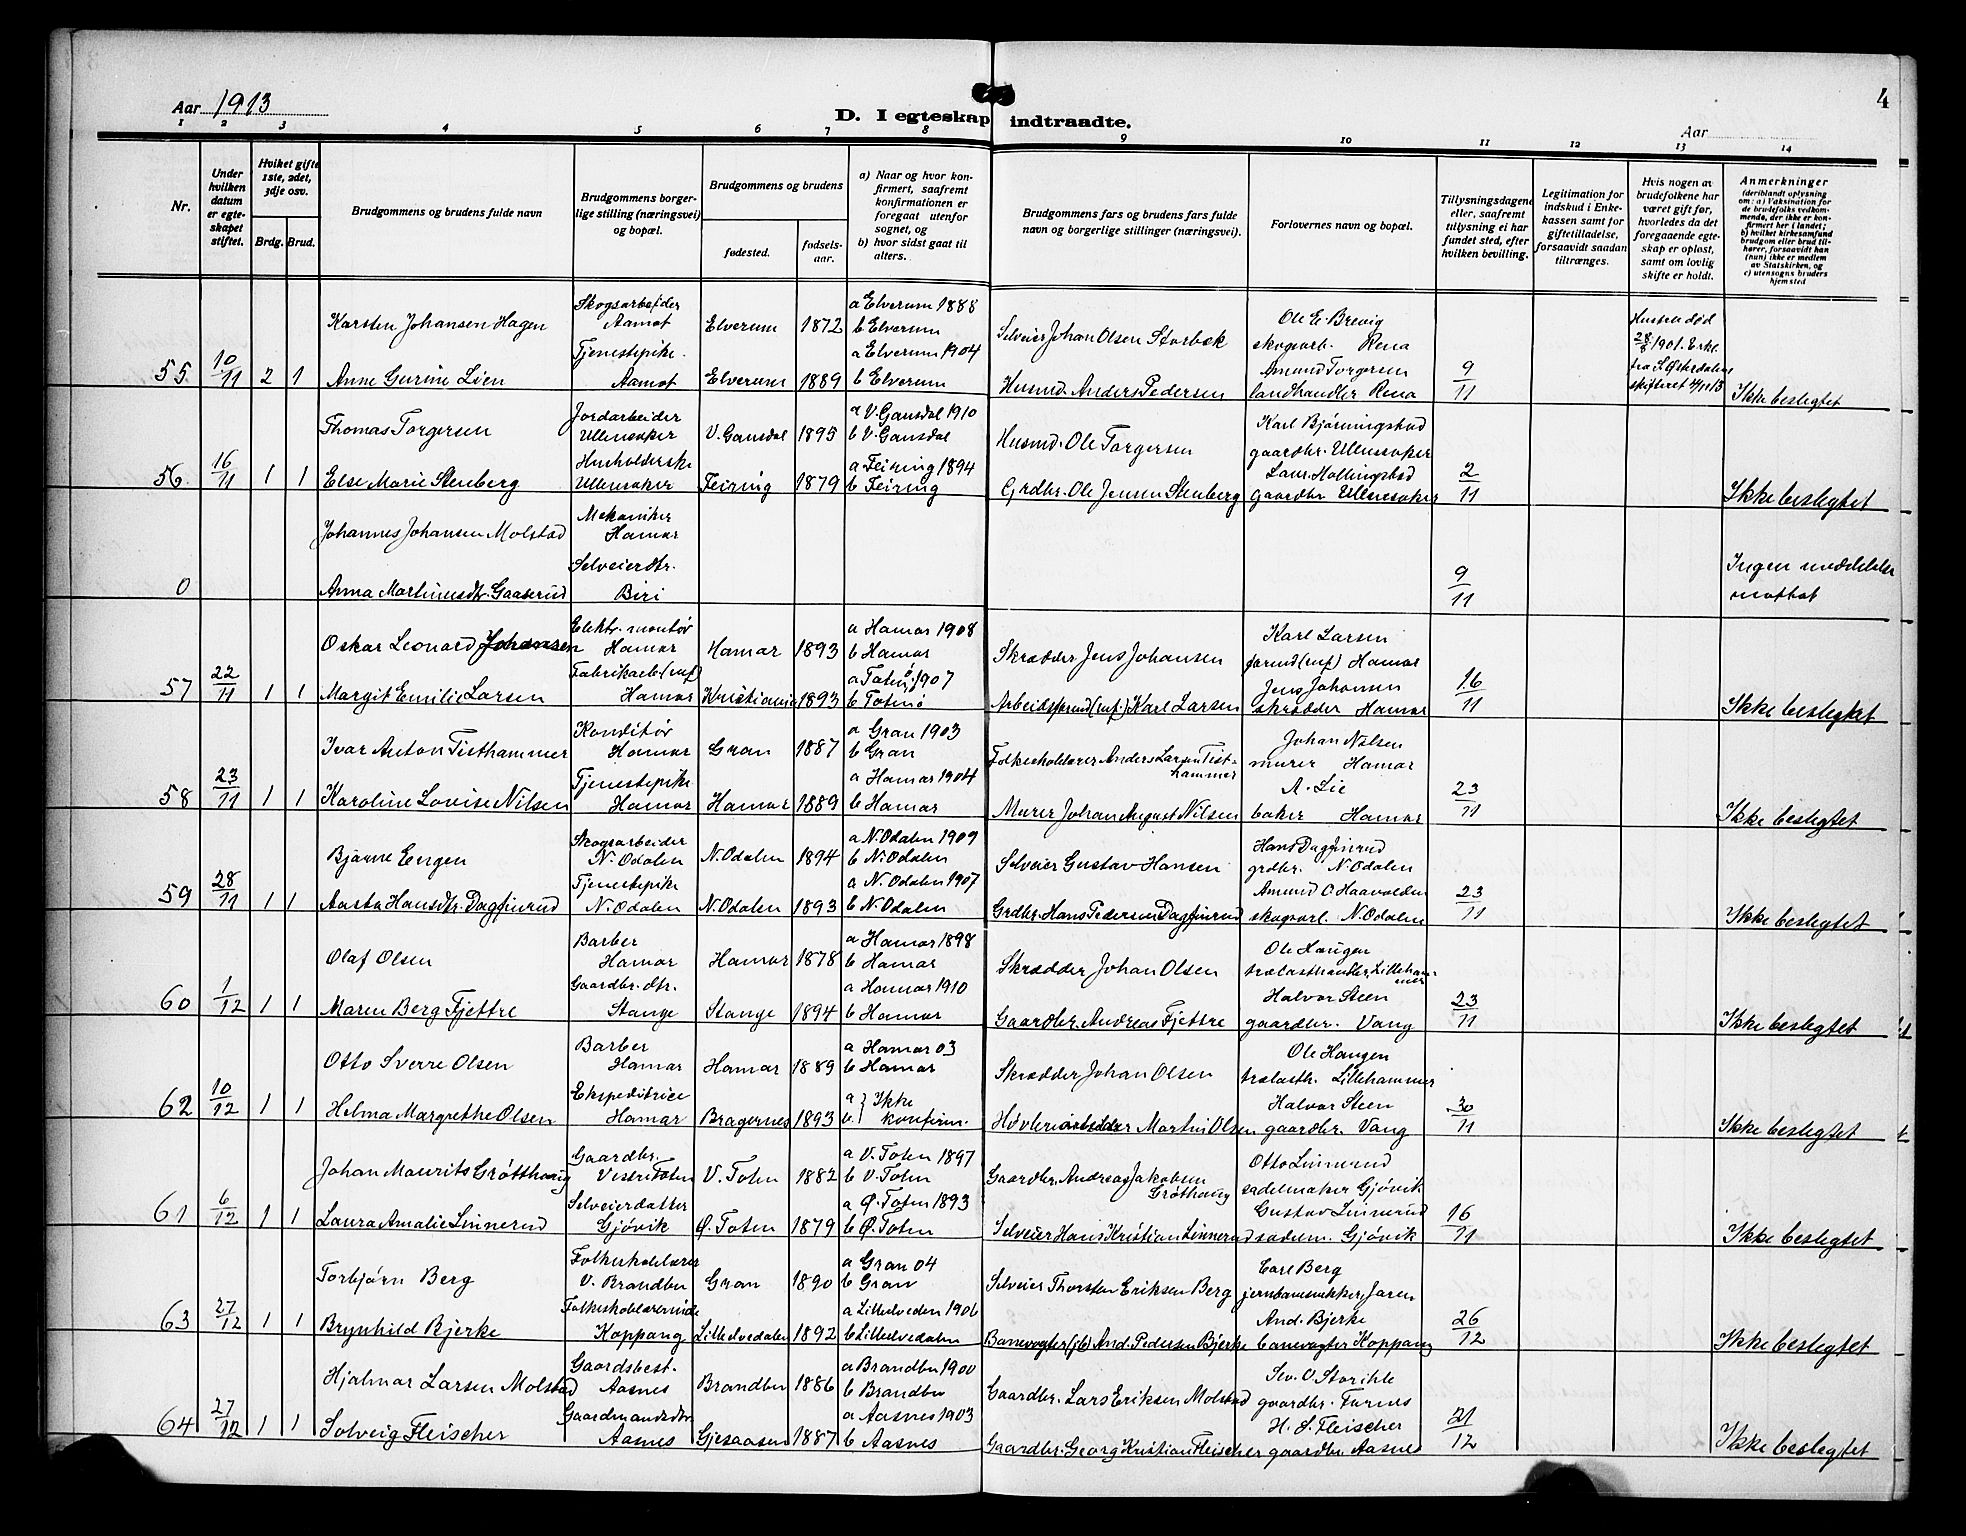 4
Aar 1913
D. I egteskap indtraadte.
Aar
1 2 3 4 5 6 7 8 9 10 11 12 13 14
Nr.
Under hvilken datum er egteskapet stiftet.
Hvilket gifte 1ste, 2det, 3dje osv.
Brdg. Brud.
Brudgommens og brudens fulde navn
Brudgommens borgerlige stilling (næringsvei) og bopæl.
Brudgommens og brudens
fødested.
fødselsaar.
a) Naar og hvor konfirmert, saafremt konfirmationen er foregaat utenfor sognet, og
b) hvor sidst gaat til alters.
Brudgommens fars og brudens fars fulde navn og borgerlige stillinger (næringsvei).
Forlovernes navn og bopæl.
Tillysningsdagene eller, saafremt tillysning ei har fundet sted, efter hvilken bevilling.
Legitimation for indskud i Enkekassen samt for giftetilladelse, forsaavidt saadan tiltrænges.
Hvis nogen av brudefolkene har været gift før, hvorledes da det foregaaende egteskap er opløst, samt om lovlig skifte er holdt.
Anmerkninger
(deriblandt oplysning om: a) Vaksination for de brudefolks vedkommende, der ikke er konfirmert her i landet;
b) hvilket kirkesamfund brudgom eller brud tilhører, forsaavidt han (hun) ikke er medlem av Statskirken, og
c) utensogns bruders hjemsted
55 10/11 2 1
Karsten Johansen Hagen Skogsarbeider Aamot Elverum 1872 a Elverum 1888 b Elverum Selveier Johan Olsen Storbæk Ole E. Brevig skogsarb. Rena
Anne Gurine Lien Tjenestepike Aamot Elverum 1889 a Elverum 1904 b Elverum Husmd. Anders Pedersen Amund Torgersen landhandler Rena 9/11
Hustru død 1901. Erkl. fra S. Østerdalens skifteret 4/11 13 Ikke beslegtet
56 16/11 1 1
Thomas Torgersen Jordarbeider Ullensaker V. Gausdal 1895 a V. Gausdal 1910 b V. Gausdal Husmd. Ole Torgersen Karl gaardbr. Ullensaker
Else Marie Stenberg Husholderske Ullensaker Feiring 1879 a Feiring 1894 b Feiring Grdbr. Ole Jensen Stenberg gaardbr Ullensaker 2/11 Ikke beslegtet
0
Johannes Johansen Molstad Mekaniker Hamar
Anna Martinusdtr. Gaaserud Selveierdtr. Biri 9/11 Ingen meddelelse mottat
57 22/11 1 1
Oskar Leonard Johansen Elektr. montør Hamar Hamar 1893 a Hamar 1908 b Hamar Skrædder Jens Johansen Karl Larsen formd (cuf) Hamar
Margit Emilie Larsen Fabrikarb (cuf) Hamar Kristiania 1893 a Toten ø. 1907 b Toten ø Arbeidsformd (cuf.) Karl Larsen Jens Johansen skrædder Hamar 16/11 Ikke beslegtet
58 23/11 1 1
Ivar Anton Tisthammer Konditør Hamar Gran 1887 a Gran 1903 b Gran Folkeskolelærer Anders Larsen Tisthammer Johan Nilsen murer Hamar
Karoline Lovise Nilsen Tjenestepike Hamar Hamar 1889 a Hamar 1904 b Hamar Murer Johan August Nilsen A. Lie baker Hamar 23/11 Ikke beslegtet
59 28/11 1 1
Bjarne Engen Skogsarbeider N. Odalen N. Odalen 1894 a N. Odalen 1909 b N. Odalen Selveier Gustav Hansen Hans Dagfinrud grdbr. N. Odalen
Aasta Hansdtr. Dagfinrud Tjenestepike N. Odalen N. Odalen 1893 a N. Odalen 1907 b N. Odalen Grdbr. Hans Pedersen Dagfinrud Amund O. Haavolden skogsarb. N. Odalen 23/11 Ikke beslegtet
60 1/12 1 1
Olaf Olsen Barber Hamar Hamar 1878 a Hamar 1898 b Hamar Skrædder Johan Olsen Ole Haugen trælasthandler, Lillehammer
Maren Berg Fjettre Gaardbr. dtr. Stange Stange 1894 a Hamar 1910 b Hamar Gaardbr. Andreas Fjettre Halvor Steen gaardbr. Vang 23/11 Ikke beslegtet
62 10/12 1 1
Otto Sverre Olsen Barber Hamar Hamar 1889 a Hamar 03 b Hamar Skrædder Johan Olsen Ole Haugen trælasth. Lillehammer
Helma Margrethe Olsen Ekspeditrice Hamar Bragernes 1893 a b } Ikke konfirm. Høvleriarbeider Martin Olsen Halvor Steen gaardbr. Vang 30/11 Ikke beslegtet
61 6/12 1 1
Johan Maurits Grøtthaug Gaardbr. Vestre Toten V. Toten 1882 a V. Toten 1897 b V. Toten Gaardbr. Andreas Jakobsen Grøthaug Otto Linnerud sadelmaker Gjøvik
Laura Amalie Linnerud Selveierdatter Gjøvik Ø. Toten 1879 a Ø. Toten 1893 b Ø. Toten Selveier Hans Kristian Linnerud Gustav Linnerud sadelm. Gjøvik 16/11 Ikke beslegtet
63 27/12 1 1
Torbjørn Berg Folkeskolelærer V. Brandbu Gran 1890 a Gran 04 b Gran Selveier Thorsten Eriksen Berg Carl Berg Jaren
Brynhild Bjerke Folkeskolelærerinde Koppang Lilleelvedalen 1892 a Lilleelvedalen 1906 b Lilleelvedalen Banevogter (jb) And. Pedersen Bjerke And. Bjerke banevogter Koppang 26/12 Ikke beslegtet
64 27/12 1 1
Hjalmar Larsen Molstad Gaardsbest. Aasnes Brandbu 1886 a Brandbu 1900 b Brandbu Gaardbr. Lars Eriksen Molstad gaardbr.
Solveig Fleischer Gaardmandsdtr. Aasnes Gjesaasen 1887 a Aasnes 1903 b Aasnes Gaardbr. Georg Kristian Fleischer H. S. Fleischer gaardbr. Aasnes 21/12 Ikke beslegtet